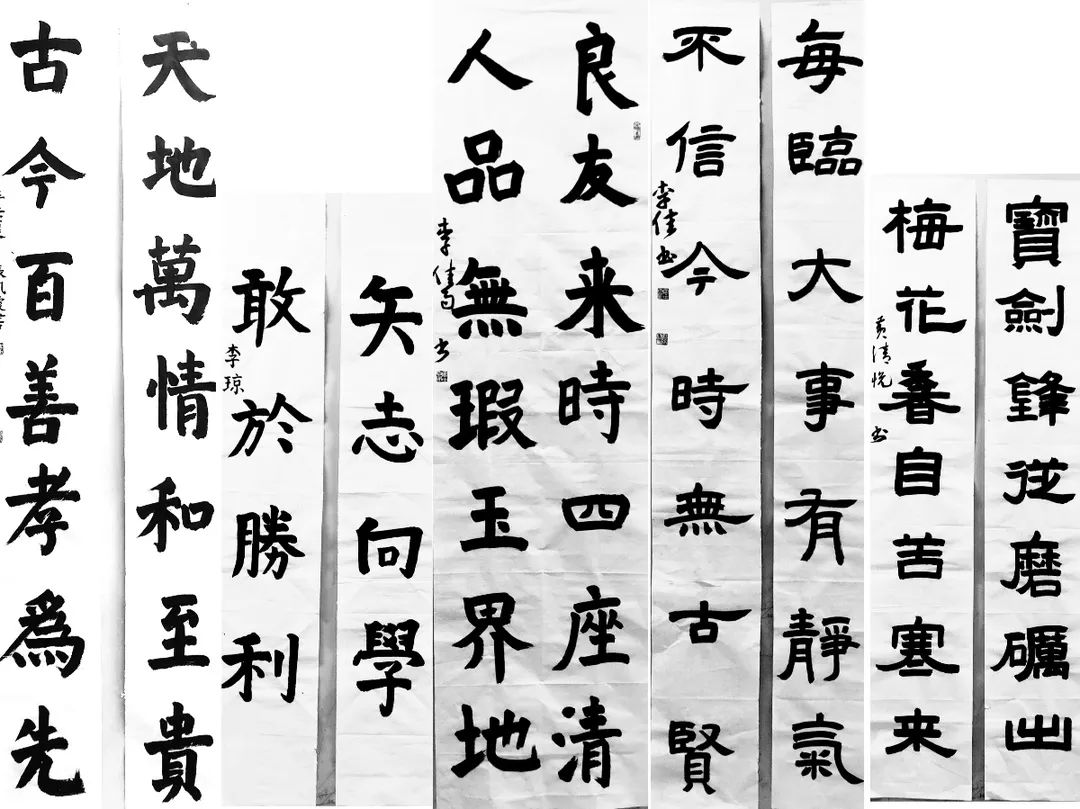 寶劍鋒從磨礪出
梅花香自苦寒来
黄清悦书
每臨大事有靜氣
不信今時無古賢
李佳书
良友来時四座清
人品無瑕玉界地
矢志向學
敢於勝利
李琼
天地萬情和至貴
古今百善孝爲先